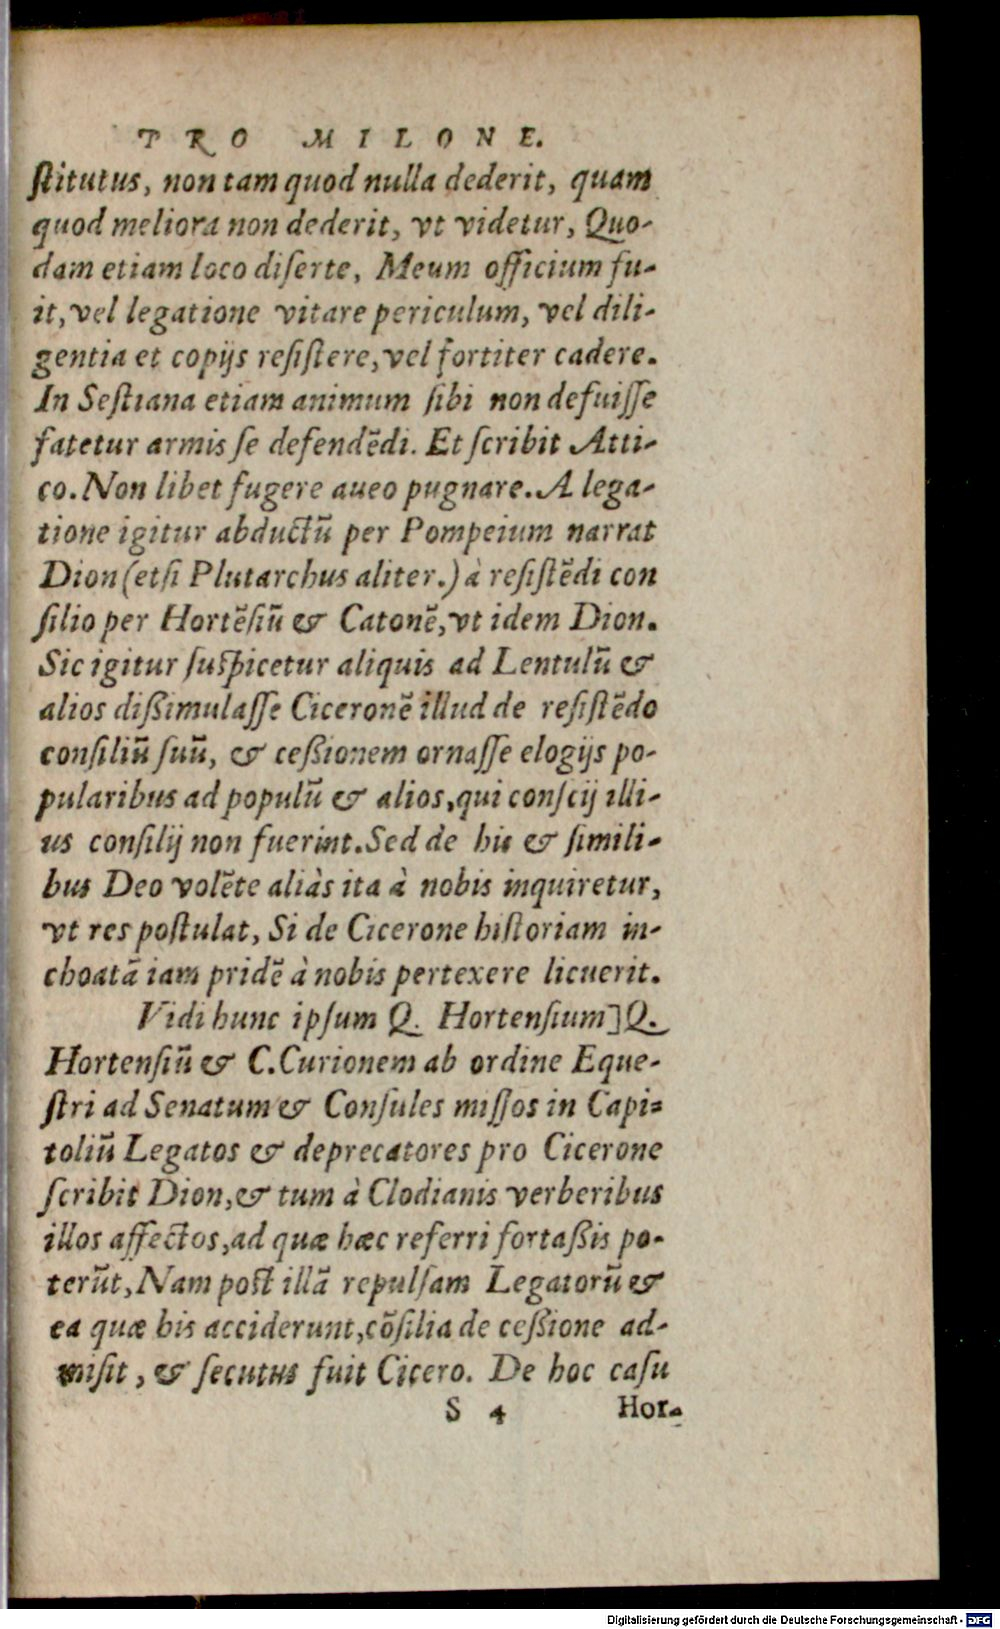 PRO MILONE.
stitutus, non tam quod nulla dederit, quam
quod meliora non dederit, vt videtur, Quo-
dam etiam loco diserte, Meum officium fu-
it, vel legatione vitare periculum, vel dili-
gentia et copijs resistere, vel fortiter cadere.
In Sestiana etiam animum sibi non defuisse
fatetur armis se defendēdi. Et scribit Atti-
co. Non libet fugere aueo pugnare. A lega-
tione igitur abductū per Pompeium narrat
Dion (etsi Plutarchus aliter.) à resistēdi con
silio per Hortēsiū & Catonē, vt idem Dion.
Sic igitur suspicetur aliquis ad Lentulū &
alios dißimulasse Ciceronē illud de resistēdo
consiliū suū, & ceßionem ornasse elogijs po-
pularibus ad populū & alios, qui conscij illi-
us consilij non fuerint. Sed de his & simili-
bus Deo volēte aliàs ita à nobis inquiretur,
vt res postulat, Si de Cicerone historiam in-
choatā iam pridē à nobis pertexere licuerit.
Vidi hunc ipsum Q. Hortensium] Q.
Hortensiū & C. Curionem ab ordine Eque-
stri ad Senatum & Consules missos in Capi=
toliū Legatos & deprecatores pro Cicerone
scribit Dion, & tum à Clodianis verberibus
illos affectos, ad quæ hæc referri fortaßis po-
terūt, Nam post illā repulsam Legatorū &
ea quæ his acciderunt, cōsilia de ceßione ad-
misit, & secutus fuit Cicero. De hoc casu
S 4 Hor-
Digitalisierung gefördert durch die Deutsche Forschungsgemeinschaft - DFG